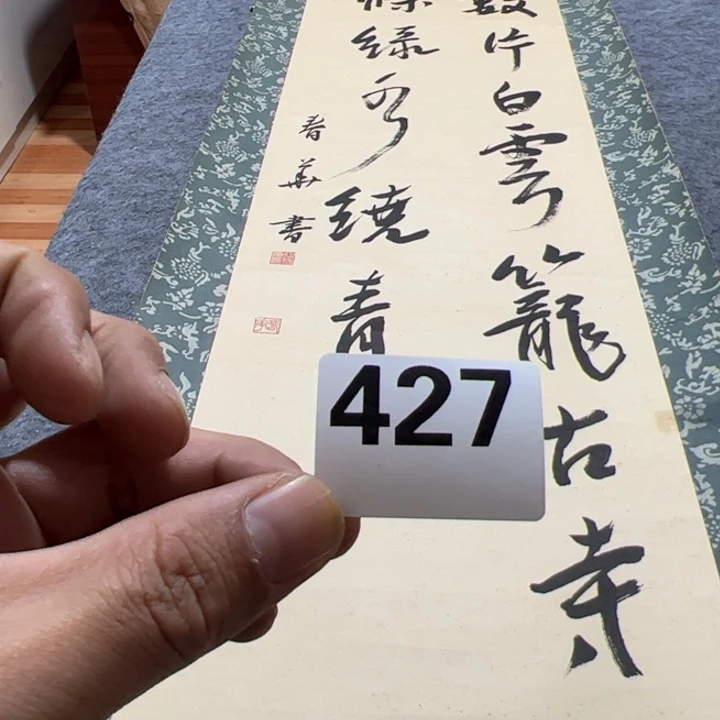 數片白雲籠古寺
條綠水繞青
春華書
427